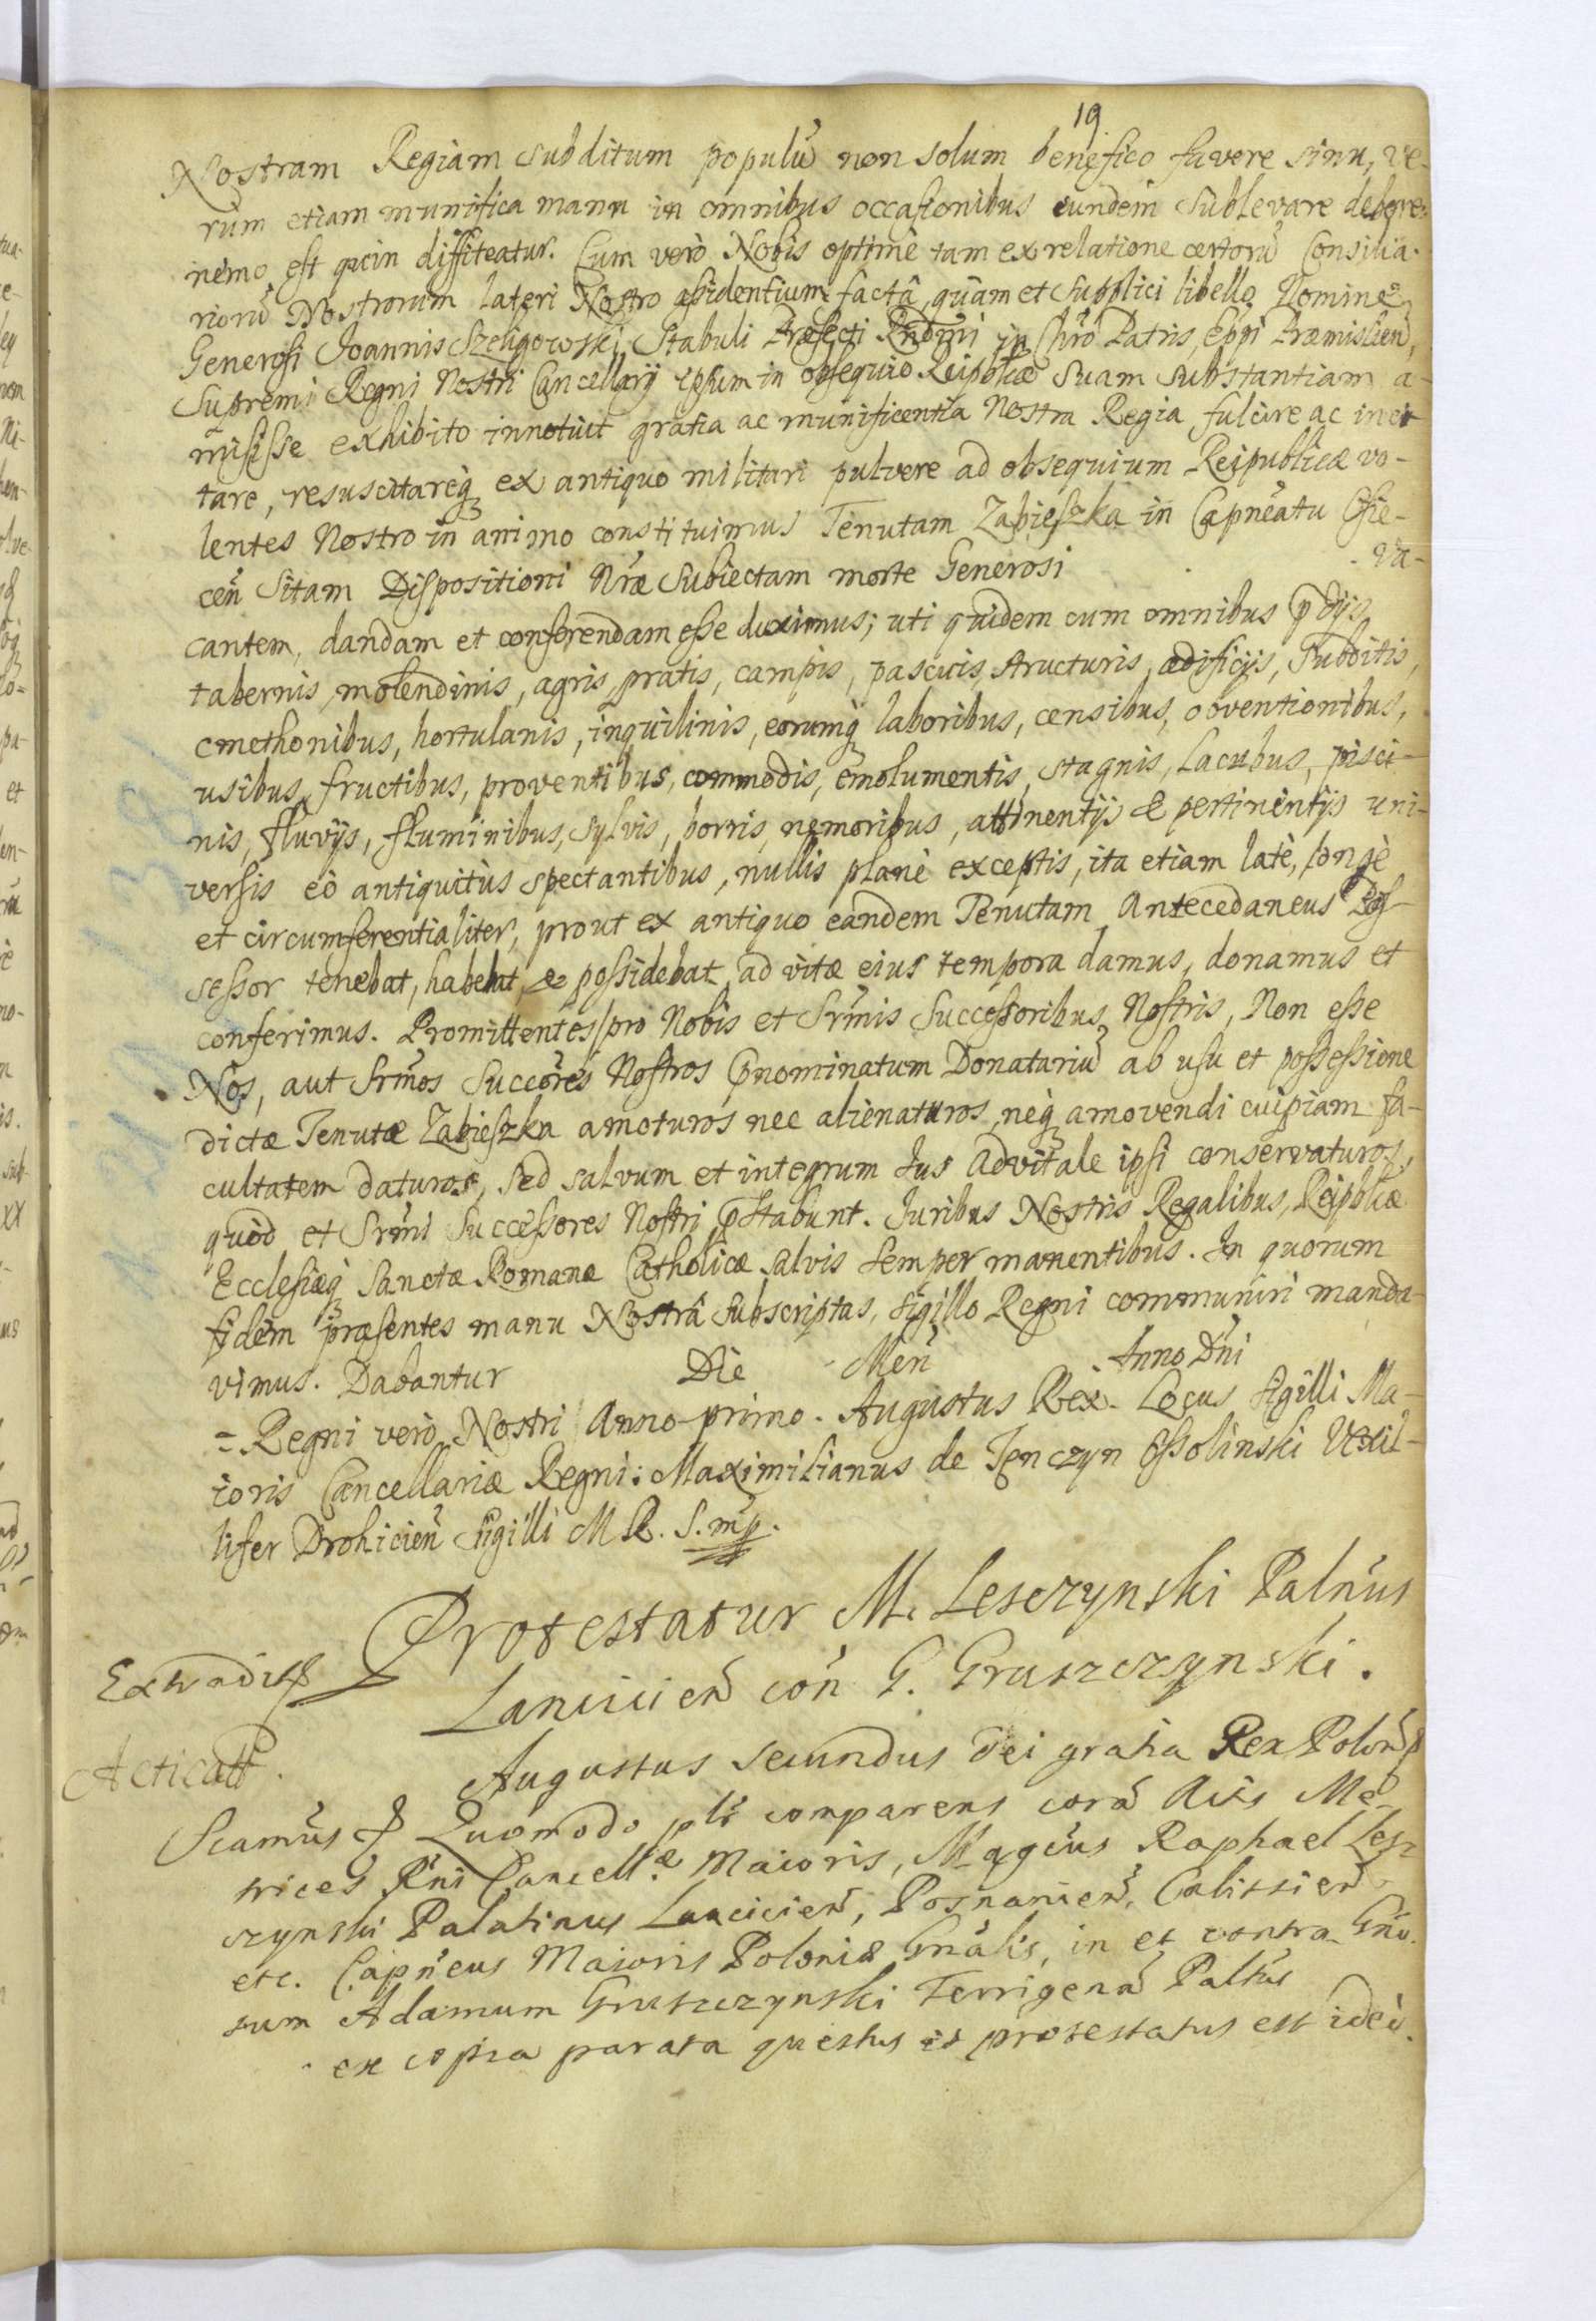 19
Nostram Regiam subditum populũ non solum benefico favere sinu, ve-
rum etiam munifica manu in omnibus occasionibus eundem sublevare debere
nemo est qvin diffiteatur. Cum verò Nobis optimè tam ex relatione certorũ Consilia-
riorũ Nostrorum lateri Nostro assidentium factâ, quam et supplici libello Nomine
Generosi Joannis Szeligowski Stabuli Præfecti Rndmi in Chrõ Patris, Eppi Præmislien,
Supremi Regni Nostri Cancellarij ipsum in obsequio Reipblicæ suam substantiam a-
misisse exhibito innotuit gratia ac munificentia Nostra Regia fulcire ac inci-
tare, resuscitareq ex antiquo militari pulvere ad obsequium Reipublicæ vo-
lentes Nostro in animo constituimus Tenutam Zabieszka in Capneatu Osie-
cen sitam Dispositioni Nræ Subiectam morte Generosi va-
cantem, dandam et conferendam esse duximus; uti quidem cum omnibus pdijs,
tabernis, molendinis, agris, pratis, campis, pascuis, structuris, ædificijs, Subditis,
cmethonibus, hortulanis, inquilinis, eorumq laboribus, censibus, obventionibus,
usibus, fructibus, proventibus, commodis, emolumentis, stagnis, Lacubus, pisci-
nis, fluvijs, fluminibus, sylvis, borris, nemoribus, attinentijs & pertinentijs uni-
versis eò antiquitùs spectantibus, nullis planè exceptis, ita etiam latè, longè
et circumferentialiter, prout ex antiquo eandem Tenutam Antecedaneus Pos-
sessor tenebat, habebat, & possidebat, ad vitæ eius tempora damus, donamus et
conferimus. Promittentes pro Nobis et Srmis Successoribus Nostris, Non esse
Nos, aut Srmos Succores Nostros pnominatum Donatariũ ab usu et possessione
dictæ Tenutæ Zabieszka amoturos nec alienaturos, neq amovendi cuipiam fa-
cultatem daturos, sed salvum et integrum Jus Advitale ipsi conservaturos,
quod et Srmi Successores Nostri pstabunt. Juribus Nostris Regalibus, Reipblicæ
Ecclesiæq Sanctæ Romanæ Catholicæ salvis semper manentibus. In quorum
fidem præsentes manu Nostrâ subscriptas, sigillo Regni communiri manda-
vimus. Dabantur Die Men Anno Dni
= Regni verò Nostri Anno primo. Augustus Rex. Locus sigilli Ma-
ioris Cancellariæ Regni: Maximilianus de Tenczyn Ossolinski Vexil-
lifer Drohicien sigilli M R. S. mp.
Protestatur M. Lesczynski Palnus
Extradit
Lancicien con G. Gruszczynski.
Acticatt.
Augustus secundus Dei gratia Rex Polon
Scamus Quomodo plr comparens corã Actis Me-
trices Rni Cancellæ Maioris, Magcus Raphael Lesz-
czynski Palatinus Lancicien, Posnanien, Calissien
etc. Capneus Maioris Poloniæ Gnalis, in et contra Gno-
sum Adamum Gruszczynski Terrigenã Paltus
ex copia parata questus et protestatus est ideò.